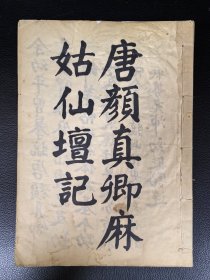 唐顏真卿麻
姑仙壇記